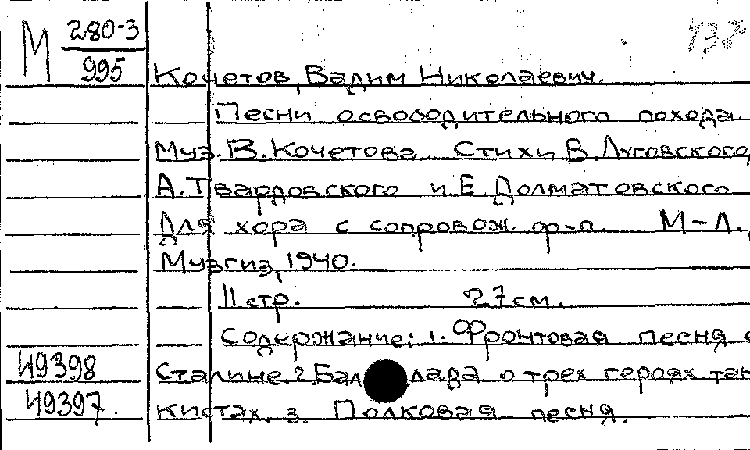 М 280-3
995
Кочетов, Вадим Николаевич.
Песни освободительного похода.
Муз. В. Кочетова. Стихи В. Луговского,
А. Твардовского и Е. Долматовского
Для хора с сопровож. ф-п. М-Л.,
Музгиз, 1940.
11 стр. 27 см.
Содержание: 1. Фронтовая песня о
49398 Сталине. 2. Баллада о трех героях тан
49397. кистах. 3. Полковая песня.